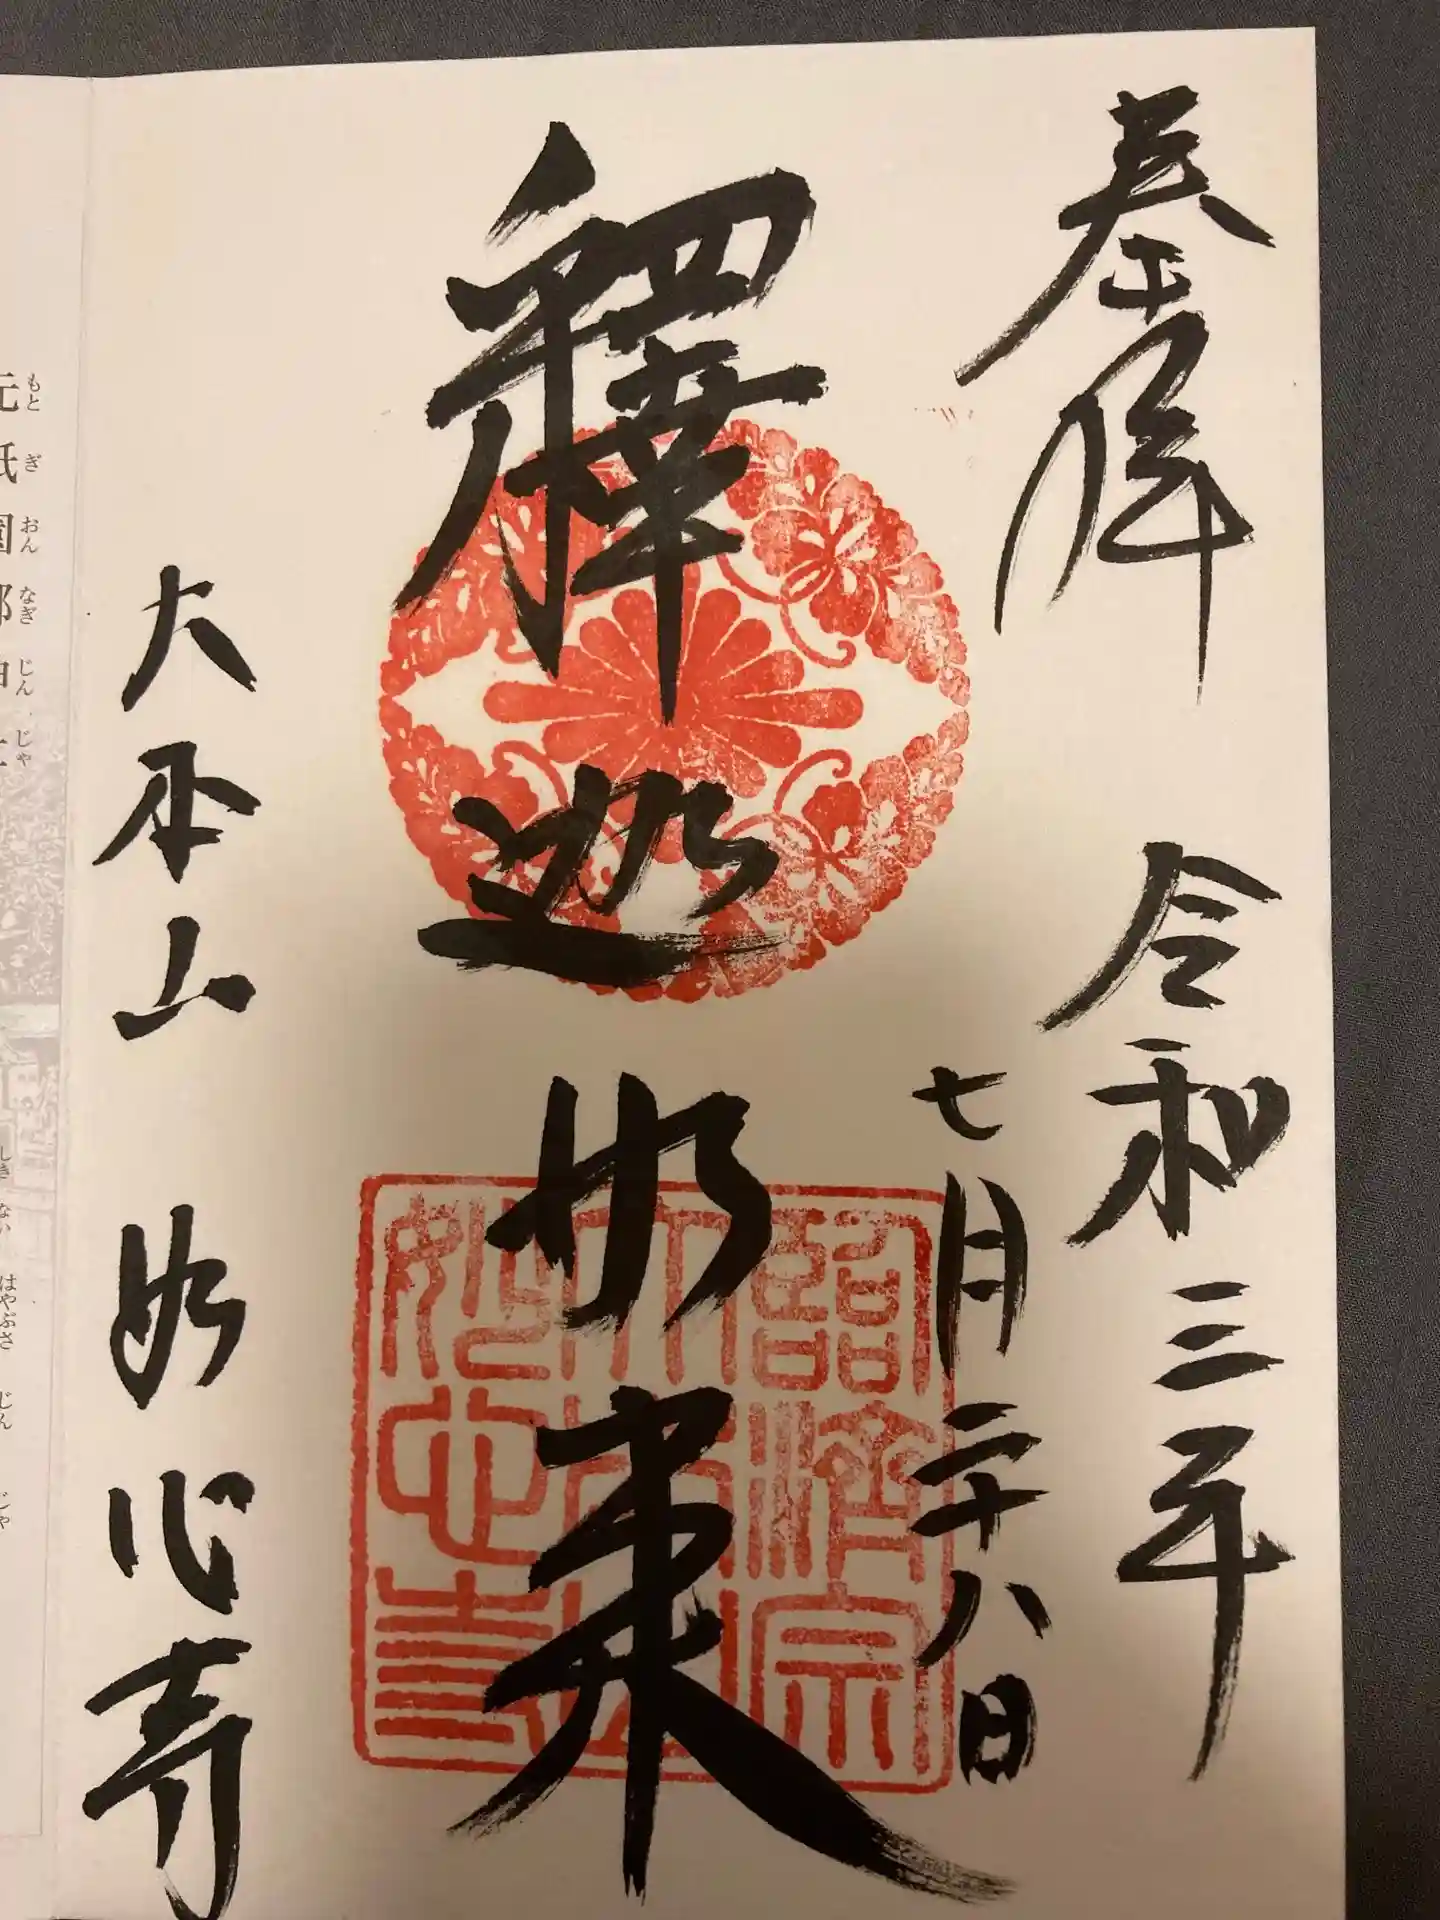 奉拝
令和三年
七月二十八日
釋迦如来
臨濟宗
大本山
妙心寺
大本山 妙心寺
もと ぎ おん なぎ じん じゃ
しき ない はやぶさ じん じゃ